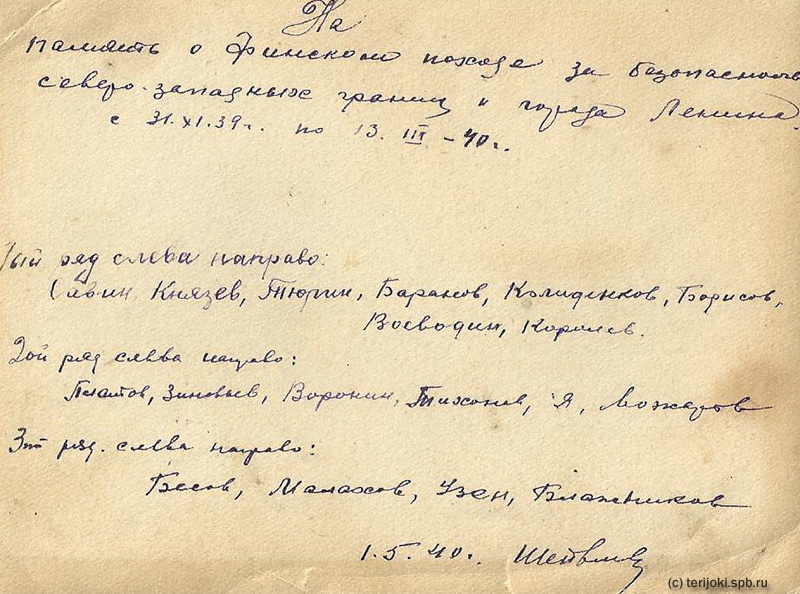 На
память о Финском походе за безопасность
северо-западных границ и города Ленина.
с 31.XI.39г. по 13.III-40г.
1ый ряд слева направо:
Савин Князев, Тюрин, Баранов, Колиденков, Борисов,
Воеводин, Королев.
2ой ряд слева направо:
Платов, Зиновьев, Воронин, Тихонов, Я, Можаров
3ий ряд. слева направо:
Бесов, Малахов, Узен, Блажников
1.5.40г.
(c) terijoki.spb.ru